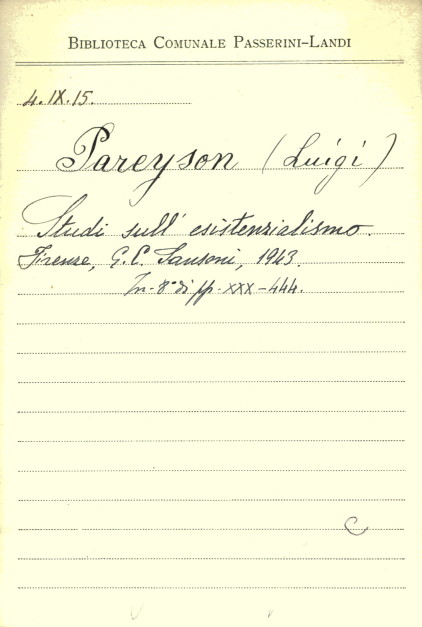 BIBLIOTECA COMUNALE PASSERINI-LANDI
4.IX.15.
Pareyson (Luigi)
Studi sull' esistenzialismo.
Firenze, G.C. Sansoni, 1943.
In-8° di pp. XXX-444.
C